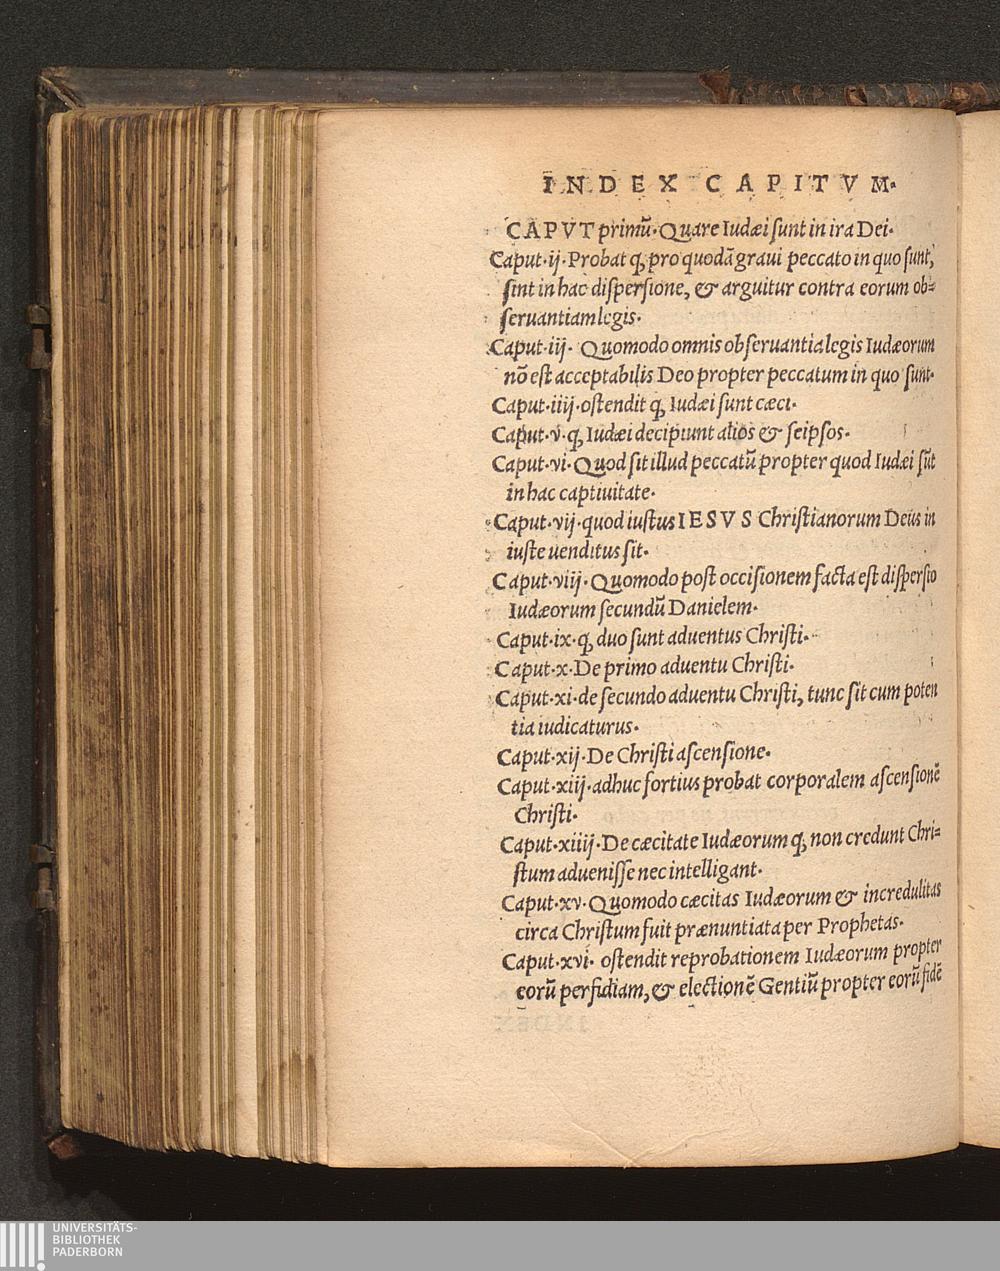 INDEX CAPITVM.
CAPVT primũ. Quare Iudæi sunt in ira Dei.
Caput.ij. Probat ꝙ pro quodã graui peccato in quo sunt,
sint in hac dispersione, & arguitur contra eorum ob=
seruantiam legis.
Caput.iij. Quomodo omnis obseruantia legis Iudæorum
nõ est acceptabilis Deo propter peccatum in quo sunt.
Caput.iiij. ostendit ꝙ Iudæi sunt cæci.
Caput.v. ꝙ Iudæi decipiunt alios & seipsos.
Caput.vi. Quod sit illud peccatũ propter quod Iudæi sũt
in hac captiuitate.
Caput.vij. quod iustus IESVS Christianorum Deus in
iuste uenditus sit.
Caput.viij. Quomodo post occisionem facta est dispersio
Iudæorum secundũ Danielem.
Caput.ix. ꝙ duo sunt aduentus Christi.
Caput.x. De primo aduentu Christi.
Caput.xi. de secundo aduentu Christi, tunc sit cum poten
tia iudicaturus.
Caput.xij. De Christi ascensione.
Caput.xiij. adhuc fortius probat corporalem ascensionẽ
Christi.
Caput.xiiij. De cæcitate Iudæorum ꝙ non credunt Chri=
stum aduenisse nec intelligant.
Caput.xv. Quomodo cæcitas Iudæorum & incredulitas
circa Christum fuit prænuntiata per Prophetas.
Caput.xvi. ostendit reprobationem Iudæorum propter
eorũ perfidiam, & electionẽ Gentiũ propter eorũ fidẽ
UNIVERSITÄTS-
BIBLIOTHEK
PADERBORN